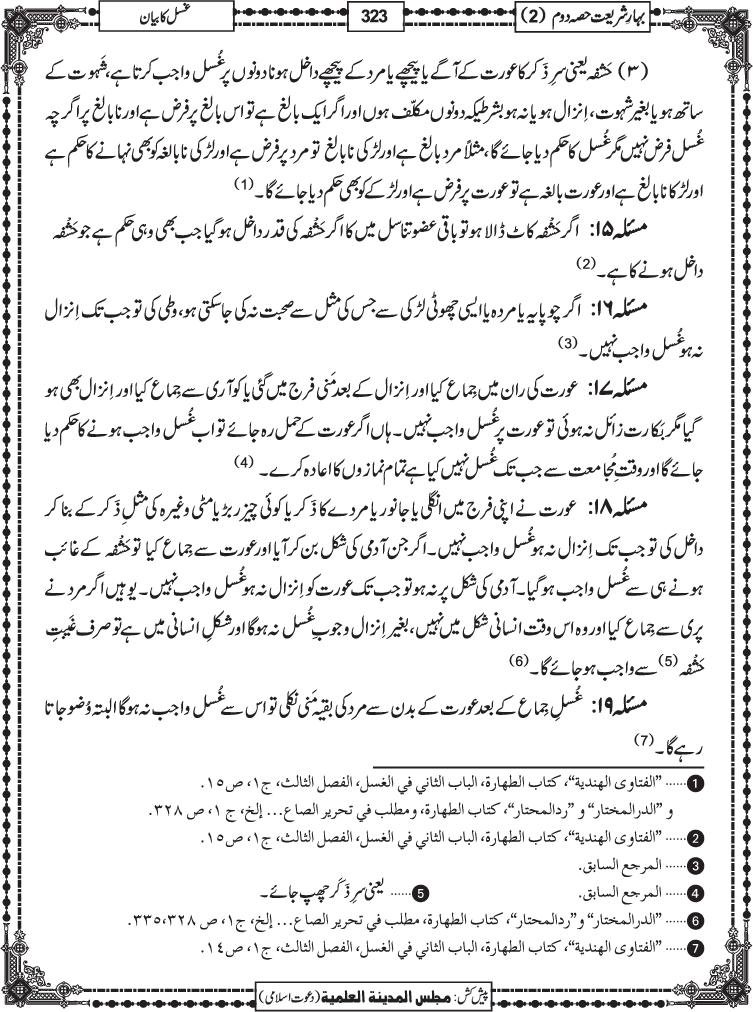 بہارِ شریعت حصہ دوم (2)
323
غسل کا بیان
(۳) حَشفہ یعنی سرِ ذَکر کا عورت کے آگے یا پیچھے یا مرد کے پیچھے داخل ہونا دونوں پر غُسل واجب کرتا ہے، شَہوت کے
ساتھ ہو یا بغیر شہوت، اِنزال ہو یا نہ ہو بشرطیکہ دونوں مکلّف ہوں اور اگر ایک بالغ ہے تو اس بالغ پر فرض ہے اور نابالغ پر اگرچہ
غُسل فرض نہیں مگر غُسل کا حکم دیا جائے گا، مثلاً مرد بالغ ہے اور لڑکی نابالغ تو مرد پر فرض ہے اور لڑکی نابالغہ کو بھی نہانے کا حکم ہے
اور لڑکا نابالغ ہے اور عورت بالغہ ہے تو عورت پر فرض ہے اور لڑکے کو بھی حکم دیا جائے گا۔ (1)
مسئلہ ۱۵: اگر حَشْفہ کاٹ ڈالا ہو تو باقی عضو تناسل میں کا اگر حَشْفہ کی قدر داخل ہو گیا جب بھی وہی حکم ہے جو حَشْفہ
داخل ہونے کا ہے۔ (2)
مسئلہ ۱۶: اگر چوپایہ یا مردہ یا ایسی چھوٹی لڑکی سے جس کی مثل سے صحبت نہ کی جا سکتی ہو، وطی کی تو جب تک اِنزال
نہ ہو غُسل واجب نہیں۔ (3)
مسئلہ ۱۷: عورت کی ران میں جِماع کیا اور اِنزال کے بعد مَنی فرج میں گئی یا کوآری سے جِماع کیا اور انزال بھی ہو
گیا مگر بَکارت زائل نہ ہوئی تو عورت پر غُسل واجب نہیں۔ ہاں اگر عورت کے حمل رہ جائے تو اب غُسل واجب ہونے کا حکم دیا
جائے گا اور وقتِ مُجامعت سے جب تک غُسل نہیں کیا ہے تمام نمازوں کا اعادہ کرے۔ (4)
مسئلہ ۱۸: عورت نے اپنی فرج میں انگلی یا جانور یا مردے کا ذَکر یا کوئی چیز ربڑ یا مٹی وغیرہ کی مثلِ ذَکر کے بنا کر
داخل کی تو جب تک اِنزال نہ ہو غُسل واجب نہیں۔ اگر جن آدمی کی شکل بن کر آیا اور عورت سے جِماع کیا تو حَشْفہ کے غائب
ہونے ہی سے غُسل واجب ہو گیا۔ آدمی کی شکل پر نہ ہو تو جب تک عورت کو اِنزال نہ ہو غُسل واجب نہیں۔ یوہیں اگر مرد نے
پری سے جِماع کیا اور وہ اس وقت انسانی شکل میں نہیں، بغیر اِنزال وجوبِ غُسل نہ ہو گا اور شکلِ انسانی میں ہے تو صرف غَیبتِ
حَشْفہ (5) سے واجب ہو جائے گا۔ (6)
مسئلہ ۱۹: غُسلِ جِماع کے بعد عورت کے بدن سے مرد کی بقیہ مَنی نکلی تو اس سے غُسل واجب نہ ہو گا البتہ وُضو جاتا
رہے گا۔ (7)
1 ...... "الفتاوی الهندية"، کتاب الطهارة، الباب الثاني في الغسل، الفصل الثالث، ج۱، ص۱۵.
و "الدرالمختار" و "ردالمحتار"، کتاب الطهارة، ومطلب في تحرير الصاع... إلخ، ج ۱، ص ۳۲۸.
2 ...... "الفتاوی الهندية"، کتاب الطهارة، الباب الثاني في الغسل، الفصل الثالث، ج۱، ص۱۵.
3 ...... المرجع السابق.
4 ...... المرجع السابق. 5 ...... یعنی سرِ ذَکَر چھپ جائے۔
6 ...... "الدرالمختار" و"ردالمحتار"، کتاب الطهارة، مطلب في تحرير الصاع... إلخ، ج۱، ص ۳۳۵،۳۲۸.
7 ...... "الفتاوی الهندية"، کتاب الطهارة، الباب الثاني في الغسل، الفصل الثالث، ج۱، ص۱۴.
پیش کش: مجلس المدينة العلمية (دعوت اسلامی)